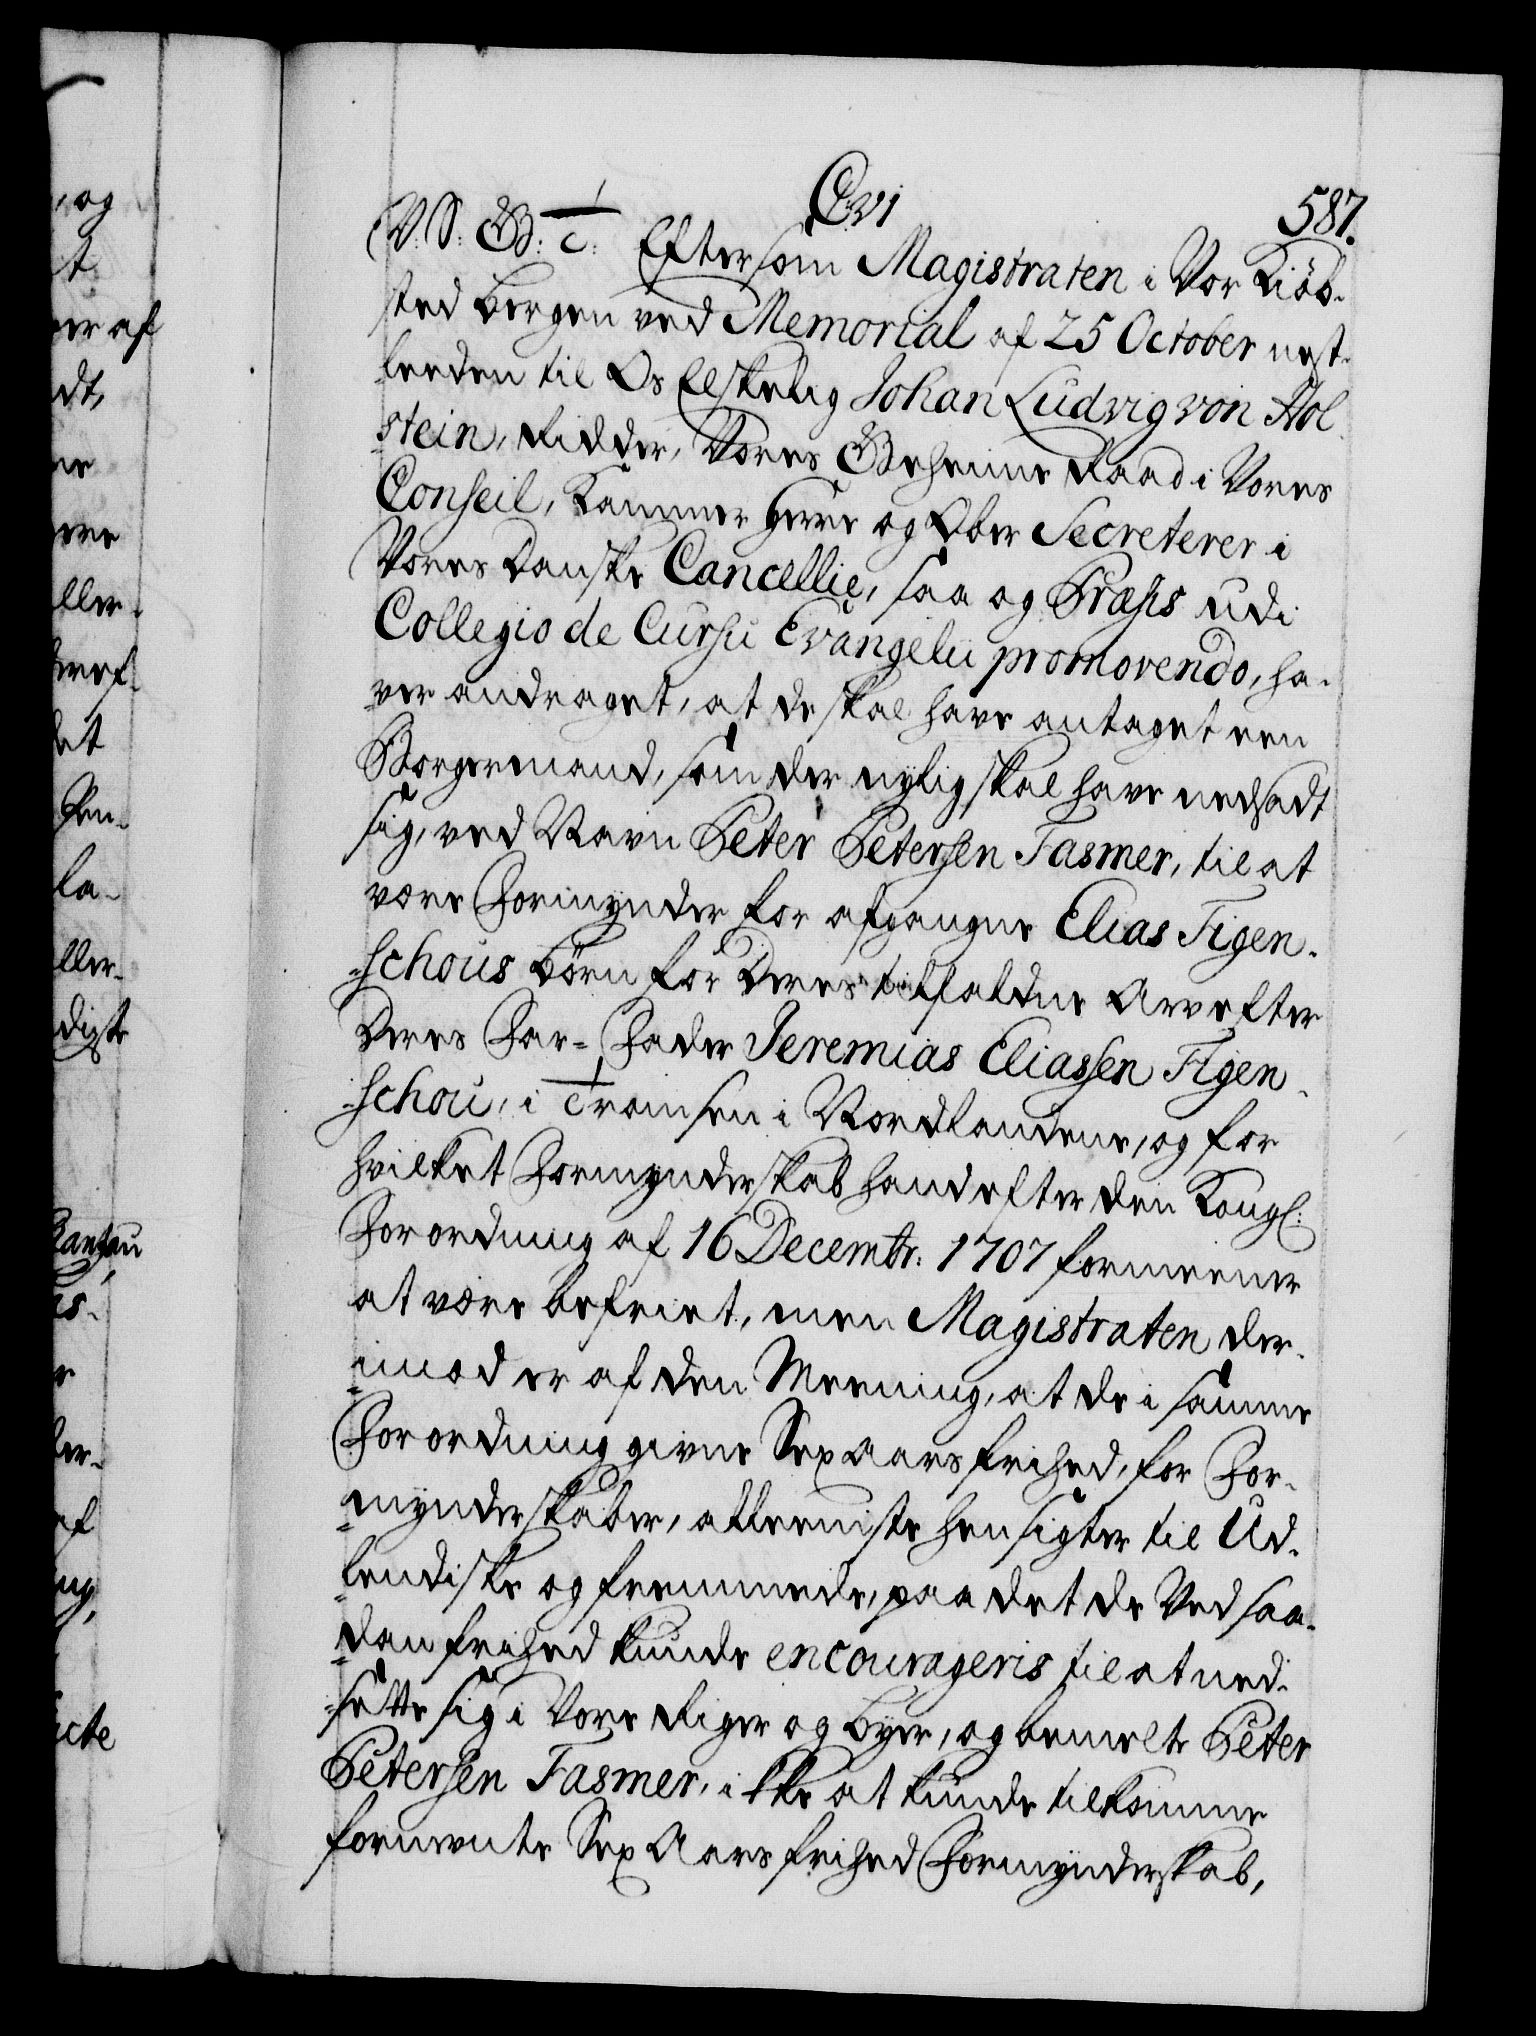 587.
V: S: G: T: Eftersom Magistraten i Vor Kiöb-
sted Bergen ved Memorial af 25 October nest-
leeden til Os Elskelig Johan Ludvig von Hol
stein, Ridder, Vores Geheime Raad i Vores
Conseil, Kammer Herre og Ober Secreterer i
Vores Danske Cancellie, saa og Præses udi
Collegio de Cursu Evangelii promovendo, ha-
ver andraget, at de skal have antaget een
Borgermand, som der nylig skal have nedsadt
sig, ved Navn Peter Petersen Fasmer, til at
være Formynder for afgangne Elias Figen-
schous Börn for Deres tilfaldne Arv efter
Deres Far-Fader Jeremias Eliassen Figen-
schou, i Tromsen i Nordlandene, og for
hvilket Formynderskab hand efter den Kongl:
Forordning af 16 Decembr: 1707 formeener
at være befriet, men Magistraten der-
imod er af den Meening, at de i samme
Forordning givne Sex Aars frihed, for For-
mynderskaber, alleeniste hensigter til Ud-
lendiske og fremmede, paa det de Ved saa-
dan frihed kunde encourageris til at ned-
sette sig i Vore Riger og Byer, og bemelte Peter
Petersen Fasmer, ikke at kunde tilkomme
formente Sex Aars frihed Formynderskab,